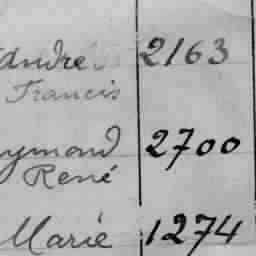 André 2163
Francis
ymond 2700
René
Marie 1274